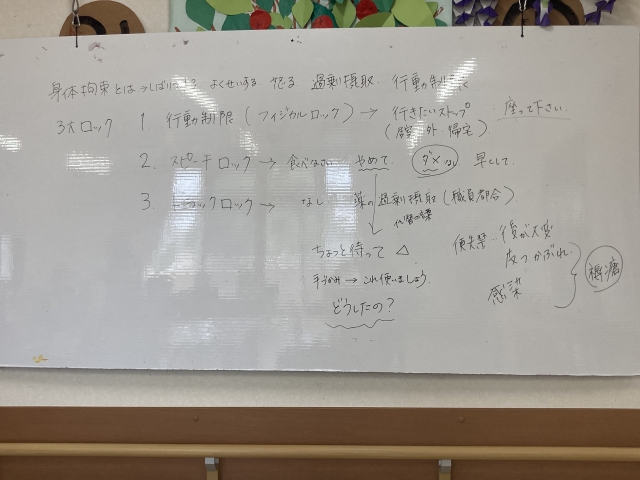 身体拘束とは→しばりつけ? よくせいする 怒る 過剰摂取 行動制限
3大ロック 1. 行動制限(フィジカルロック)→ 行きたいストップ 座って下さい
(居室 外 帰宅)
2. スピーチロック→ 食べなさい やめて ダメ 早くして
3. ドラックロック→ なし 薬の過剰摂取(職員都合)
ちょっと待って △
手づかみ → これ使いましょう
どうしたの?
便失禁… 後が大変
皮っかぶれ
感染
褥瘡